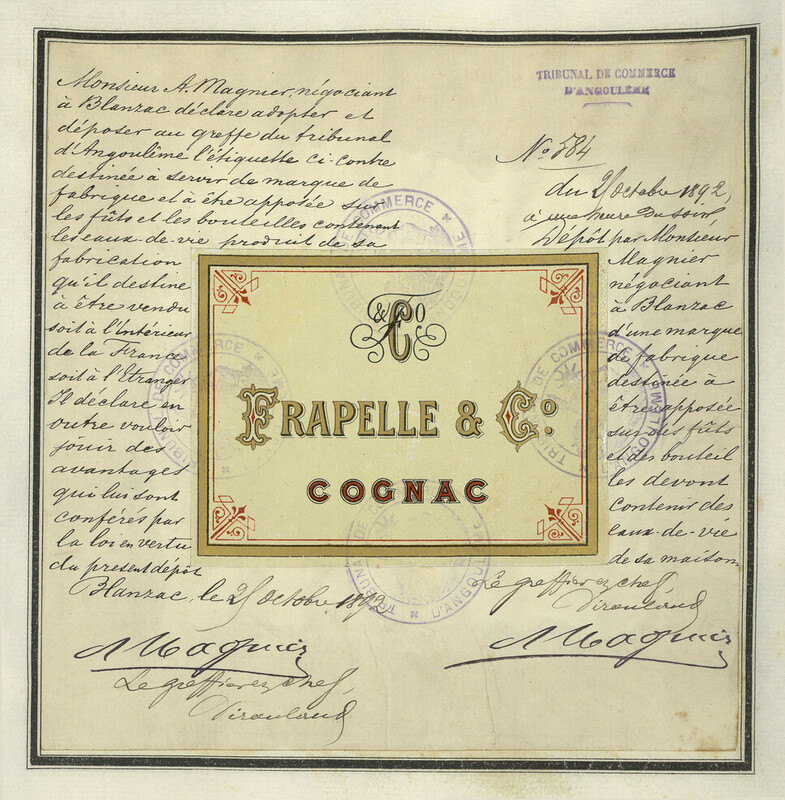 Monsieur A. Magnier, négociant
à Blanzac déclare adopter et
déposer au greffe du tribunal
d'Angoulême l'étiquette ci-contre
destinée à servir de marque de
fabrique et à être apposée sur
les fûts et les bouteilles contenant
les eaux-de-vie produit de sa
fabrication
qu'il destine
à être vendu
soit à l'Intérieur
de la France
soit à l'Etranger
Il déclare en
outre vouloir
jouir des
avantages
qui lui sont
conférés par
la loi en vertu
du present dépôt
Blanzac, le 25 Octobre 1892
A Magnier
Le greffier en chef,
TRIBUNAL DE COMMERCE
D'ANGOULÊME
No 584
du 25 Octobre 1892,
à une heure du soir
Dépôt par Monsieur
Magnier
négociant
à Blanzac
d'une marque
de fabrique
destinée à
être apposée
sur des fûts
et des bouteil
les devant
contenir des
eaux-de-vie
de sa maison
Le greffier en chef
A Magnier
F & Co
FRAPELLE & Co
COGNAC
TRIBUNAL DE COMMERCE D'ANGOULÊME
TRIBUNAL DE COMMERCE D'ANGOULÊME
TRIBUNAL DE COMMERCE D'ANGOULÊME
TRIBUNAL DE COMMERCE D'ANGOULÊME